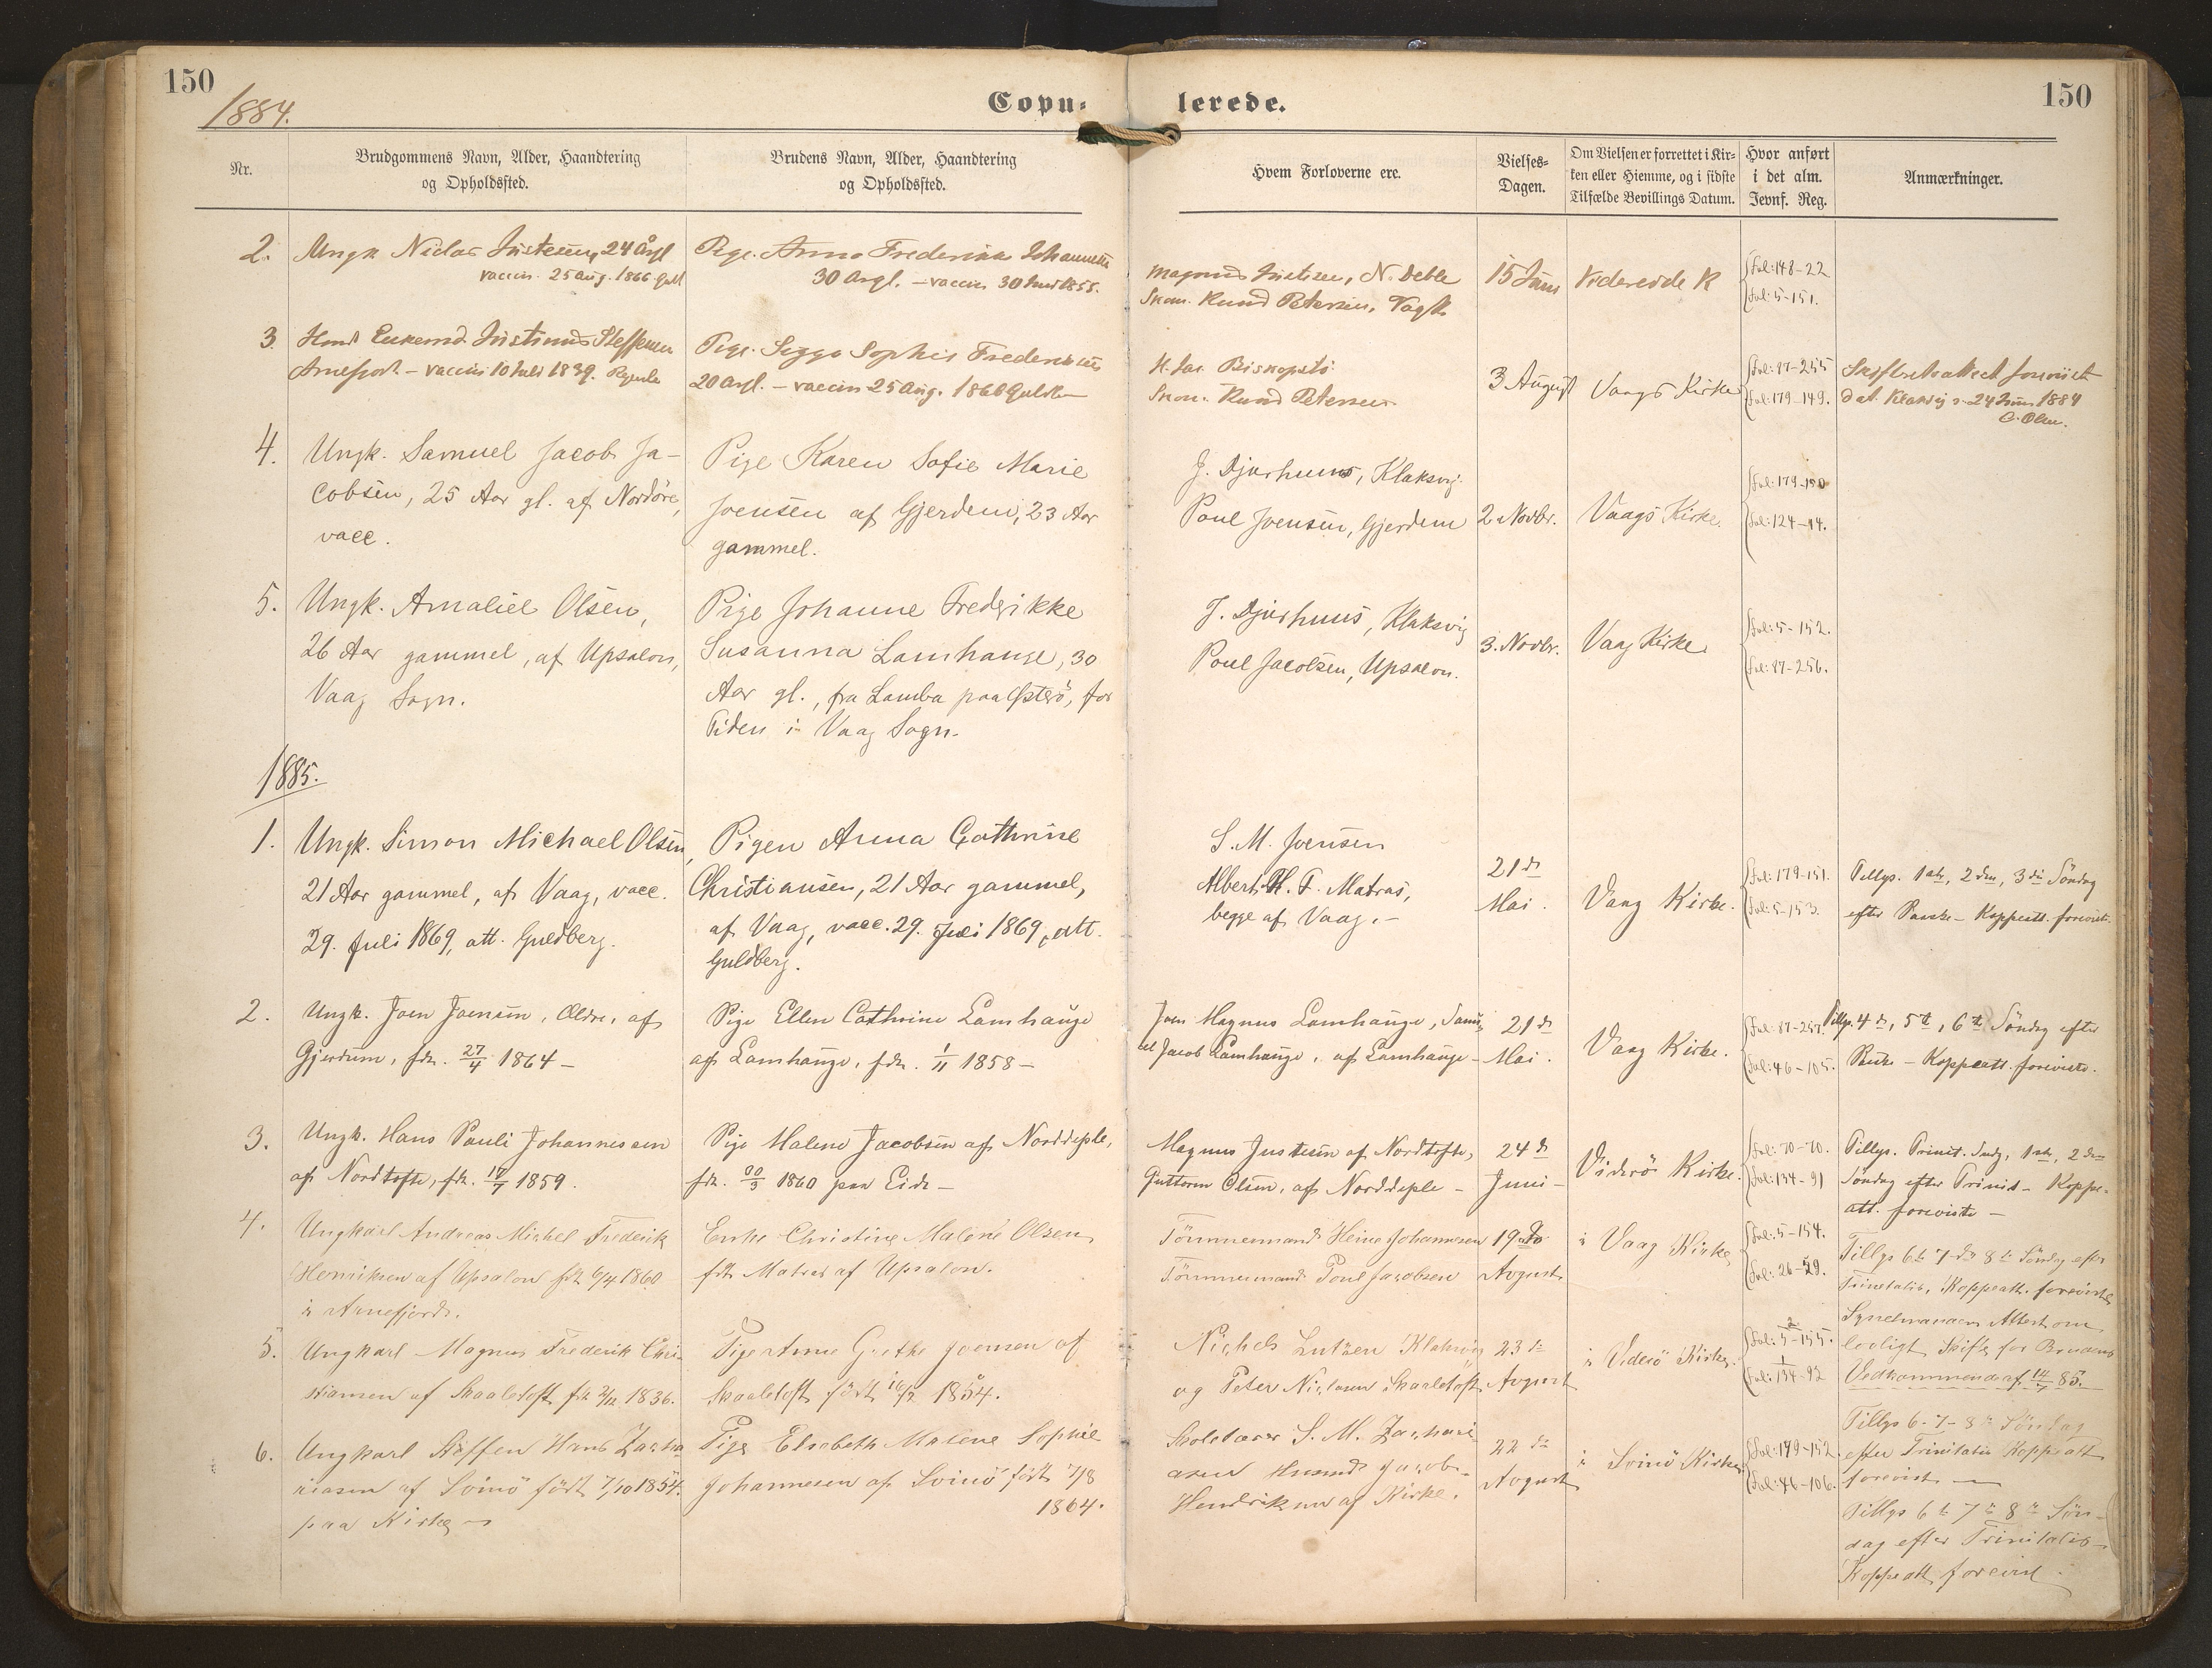 150
1884.
Copu=
lerede.
150
Nr.
Brudgommens Navn, Alder, Haandtering
og Opholdssted.
Brudens Navn, Alder, Haandtering
og Opholdssted.
Hvem Forloverne ere.
Vielses-
Dagen.
Om Vielsen er forrettet i Kir-
ken eller Hiemme, og i sidste
Tilfælde Bevillings Datum.
Hvor anført
i det alm.
Jevnf. Reg.
Anmærkninger.
2.
Ungk Niclas Justesen, 24 Aargl
vaccin. 25 Aug. 1866 Guld
Pige. Anna Frederikka Johannette
30 Aargl. – vaccin 30 1855.
Magnus Justesen, N. Deble
Skom. Knud Petersen, Vaag
15 Juni
Videreide K
Fol: 148-22
Fol: 5-151.
3.
Enkemd. Justinus Steffensen
Arnefjord – vaccin 10 Juli 1839.
Pige. Sigga Sophie Frederikke
20 Aargl. – vaccin 25 Aug. 1866
Biskopstö
Skom. Knud Petersen.
3 August
Vaags Kirke
Fol: 87-255
Fol: 179-149.
Skifteretsattest forevist
dat. Klaksvig d. 24 Juni 1884
4.
Ungk. Samuel Jacob Ja-
cobsen, 25 Aar gl. af Nordöre,
vacc.
Pige Karen Sofie Marie
Joensen af Gjerdem, 23 Aar
gammel.
J. Djurhuus, Klaksvig.
Poul Joensen, Gjerdem
2 Novbr.
Vaags Kirke.
Fol: 179-150
Fol: 124-14.
5.
Ungk. Amaliel Olsen,
26 Aar gammel, af Upsalon,
Vaag Sogn.
Pige Johanne Fredrikke
Susanna Lamhauge, 30
Aar gl., fra Lamba paa Østerö, for
Tiden i Vaag Sogn.
J. Djurhuus, Klaksvig
Poul Jacobsen, Upsalon.
3. Novbr.
Vaag Kirke.
Fol: 5-152.
Fol: 87-256.
1885.
1.
Ungk. Simon Michael Olsen,
21 Aar gammel, af Vaag, vacc.
29. Juli 1869, att. Guldberg.
Pigen Anna Cathrine
Christiansen, 21 Aar gammel,
af Vaag, vacc. 29. Juli 1869, att.
Guldberg.
S. M. Joensen
Albert H. F. Matras,
begge af Vaag.-
21de
Mai.
Vaag Kirke.
Fol: 179-151.
Fol: 5-153.
Tillys. 1ste, 2den, 3die Söndag
efter Paaske - Koppeatt. forevist.
2.
Ungk. Joen Joensen, Ældre, af
Gjerdum, föd. 27/4 1864 –
Pige Ellen Cathrine Lamhauge
af Lamhauge, föd. 1/11 1858 –
Joen Magnus Lamhauge, Samu-
el Jacob Lamhauge, af Lamhauge –
21de
Mai.
Vaag Kirke.
Fol: 87-257.
Fol: 46-105.
Tillys. 4de, 5te, 6te Söndag efter
Paaske – Koppeatt. foreviste.
3.
Ungk. Hans Pauli Johannesen
af Nordtofte, föd. 17/7 1859.
Pige Malene Jacobsen af Norddeple,
1860 paa Eide –
Magnus Justesen af Nordtofte,
Guttorm Olsen, af Norddeple –
24de
Juni –
Viderö Kirke.
Fol: 70-70.
Fol: 134-91
Tillys. Trinit. Sndg, 1ste, 2den
Söndag efter Trinit – Koppe-
att. foreviste –
4.
Ungkarl Andreas Mickel Frederik
Henriksen af Upsalon föd 6/4 1860
i Arnefjord.
Enke Christine Malene Olsen
född Matras af Upsalon.
Tömmermand Heine Johannesen
Tömmermand Poul Jacobsen
19de
August
i Vaag Kirke
Fol: 5-154.
Fol: 26-29.
Tillys 6te 7de 8de Söndag efter
Trinitatis, Koppeatt. foreviste
Sysselmandens Attest om
lovligt Skifte for Brudens
Vedkommende af 14/7 85.
5.
Ungkarl Magnus Frederik Chri-
stiansen af Skaaletoft 1836.
Pige Anne Grethe Joensen af
Skaaletoft födt 16/2 1854.
Nichels Lutzen Klaksvig
og Peter Niclasen Skaaletoft
23de
August
i Viderö Kirke.
Fol: 5-155.
Fol: 134-92
Tillys 6-7-8de Söndag
efter Trinitatis Koppeatt
forevist
6.
Ungkarl Steffen Hans Zacha-
riasen af Svinö födt 7/10 1854.
paa Kirke
Pige Elsebeth Malene Sophie
Johannesen af Svinö född 7/8
1864.
Skolelærer S. M. Zachari-
asen Husmd Jacob
Hendriksen af Kirke.
22de
August
i Svinö Kirke
Fol: 179-152.
Fol: 46-106.
Tillys 6te 7de 8de Sön-
dag efter Trinitatis
Koppeatt forevist.